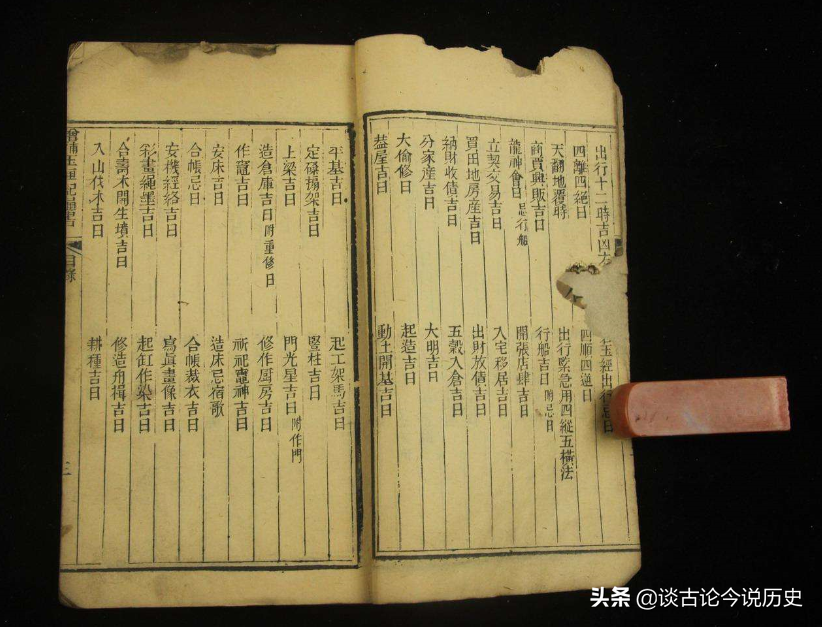 出行十二時吉凶方
玉經出行忌日
四離四絕日
四順四逆日
天翻地覆時
出行緊急用四縱五橫法
商賈興販吉日
行船吉日附忌日
龍神會日忌行船
開張店肆吉日
立契交易吉日
入宅移居吉日
買田地房產吉日
出財放債吉日
納財收債吉日
五穀入倉吉日
分家產吉日
大明吉日
大偷修日
起造吉日
蓋屋吉日
動土開基吉日
平基吉日
起工架馬吉日
定磉搧架吉日
豎柱吉日
上梁吉日
門光星吉日附作門
造倉庫吉日附重修日
修作厨房吉日
作竈吉日
祈祀竈神吉日
安床吉日
造床忌宿歌
合帳忌日
合帳裁衣吉日
安機經絡吉日
寫眞畫像吉日
彩畫繩墨吉日
起缸作染吉日
合壽木開生墳吉日
修造舟楫吉日
入山伐木吉日
耕種吉日
目錄
头条 @谈古论今说历史